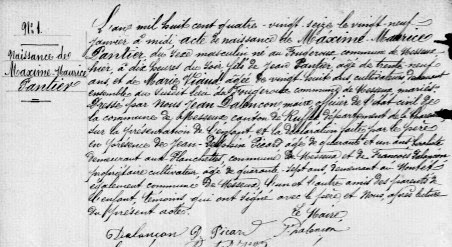 N° 1.
Naissance de
Maxime Maurice
Pantier
L'an mil huit cent quatre-vingt-seize le vingt neuf
janvier à midi acte de naissance de Maxime Maurice
Pantier du sexe masculin né au Fougeroux commune de
hier à dix heures du soir fils de Jean Pantier, âgé de trente neuf
ans et de Marie Viaud âgée de vingt huit ans cultivateurs demeurant
ensemble au susdit lieu de Fougeroux commune de mariés
Dressé par Nous Jean Dalançon maire officier de l'état civil de
la commune de canton de Ruffec département de la Charente
sur la présentation de l'enfant et la déclaration faite par le père
en présence de Jean Picard âgé de quarante et un ans
demeurant aux Planchettes, commune de et de François Dalançon
propriétaire cultivateur âgé de quarante sept ans demeurant au
également commune de l'un et l'autre amis des parents de
l'enfant, témoins qui ont signé avec le père et Nous, après lecture
du présent acte.
Le Maire
Dalançon Picard Dalançon